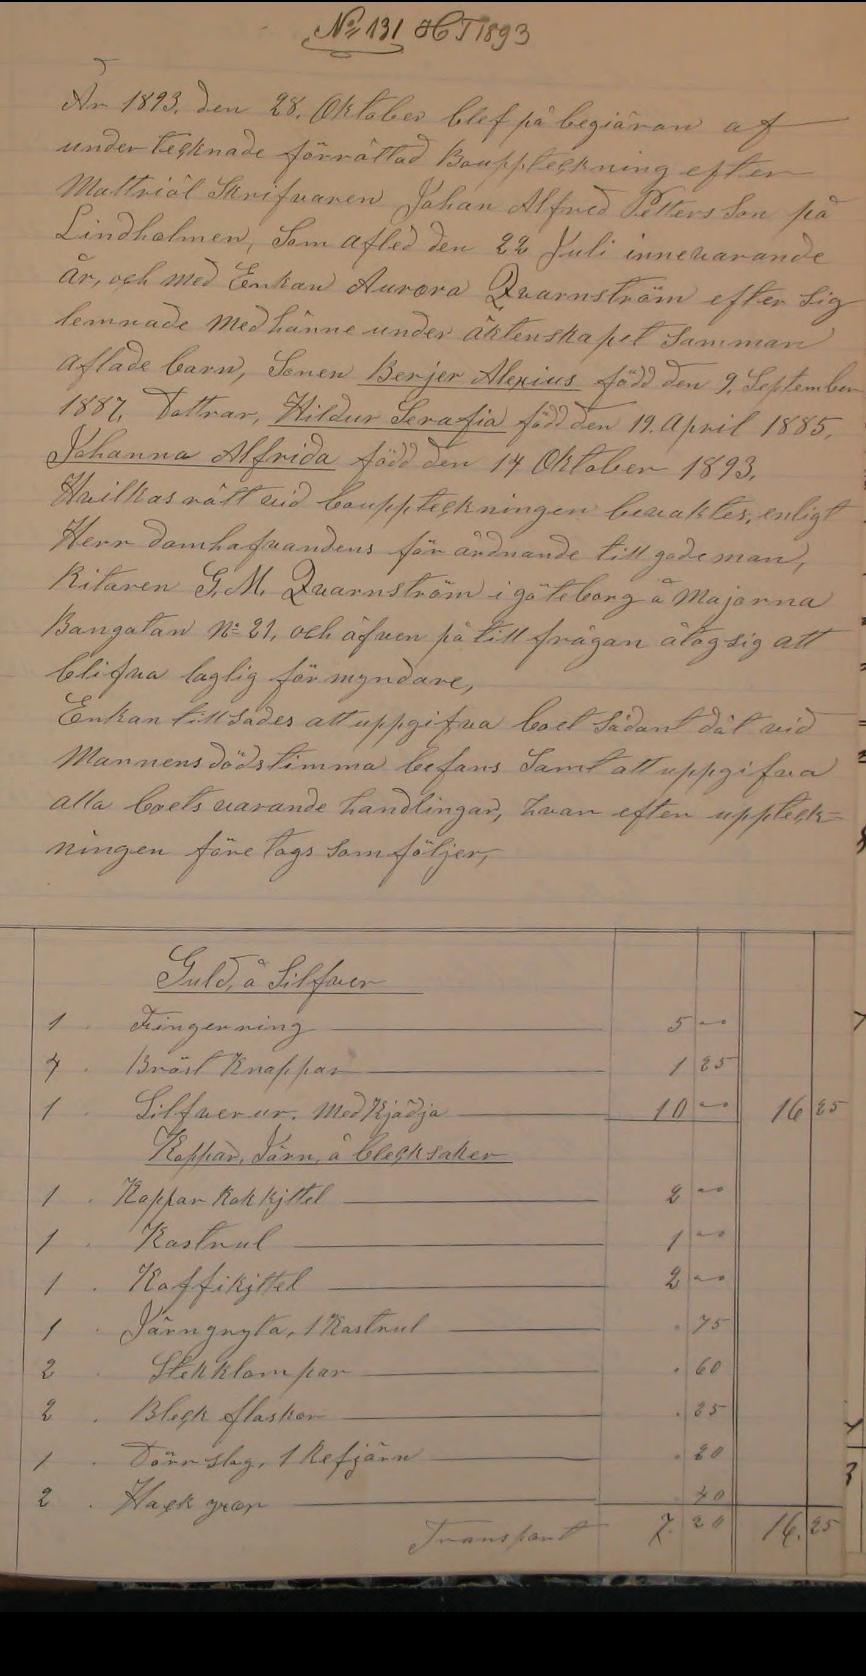 No 131 HT 1893
År 1893. den 28. Oktober blef på begiäran af
undertecknade förrättad Bouppteckning efter
Mattriàl Skrifvaren Johan Alfred Pettersson på
Lindholmen, Som afled den 22 Juli innevarande
år, och med Enkan Aurora Qvarnström efter sig
lemnade med hänne under äktenskapet Samman
aflade barn, Sonen Berjer Alexius född den 9. September
1887, Dottrar, Hildur Serafia född den 19. April 1885,
Johanna Alfrida född den 14 Oktober 1893,
Hvilkas rätt vid bouppteckningen bevaktes, enligt
Herr domhafvandens för ordnande till gode man,
Ritaren G. M. Qvarnström i göteborg å Majorna
Bangatan No 21, och äfven på till frågan åtog sig att
blifva laglig förmyndare,
Enkan tillsades att uppgifva boet Sådant dät vid
Mannens dödstimma befans Samt att uppgifva
alla boets varande handlingar, hvar efter uppteck=
ningen före togs Som följer,
Guld, å Silfver
1 . Fingerring 5 "
4 . Bröst Knappar 1 25
1 . Silfverur. Med Kjädja 10 " 16 25
Koppar, Järn, å blecksaker
1 . Koppar Kok kjttel 2 "
1 . Kastrul 1 "
1 . Kaffikjttel 2 "
1 . Järngryta, 1 Kastrul . 75
2 Stekklampar . 60
2 . Bleck flaskor . 25
1 . Dörrslag, 1 Refjärn . 20
2 . Hack 40
Transport 7. 20 16. 25